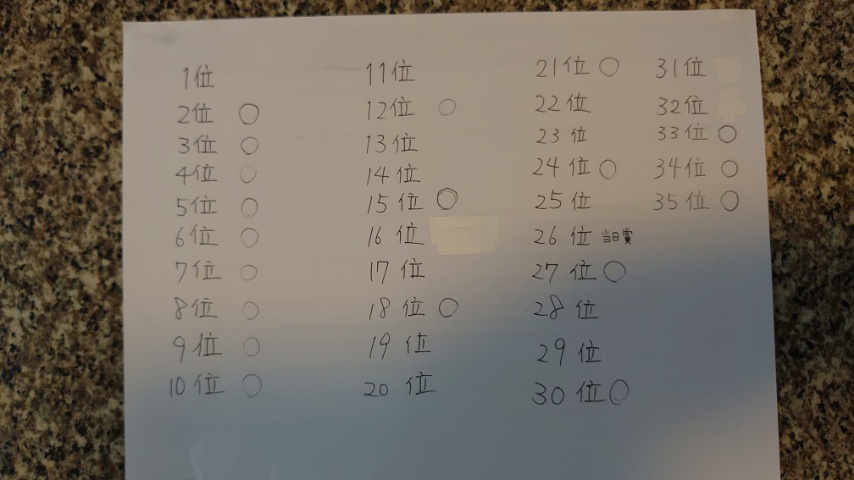 1位
2位 ○
3位 ○
4位 ○
5位 ○
6位 ○
7位 ○
8位 ○
9位 ○
10位 ○
11位
12位 ○
13位
14位
15位 ○
16位
17位
18位 ○
19位
20位
21位 ○
22位
23位
24位 ○
25位
26位 当日賞
27位 ○
28位
29位
30位 ○
31位
32位
33位 ○
34位 ○
35位 ○